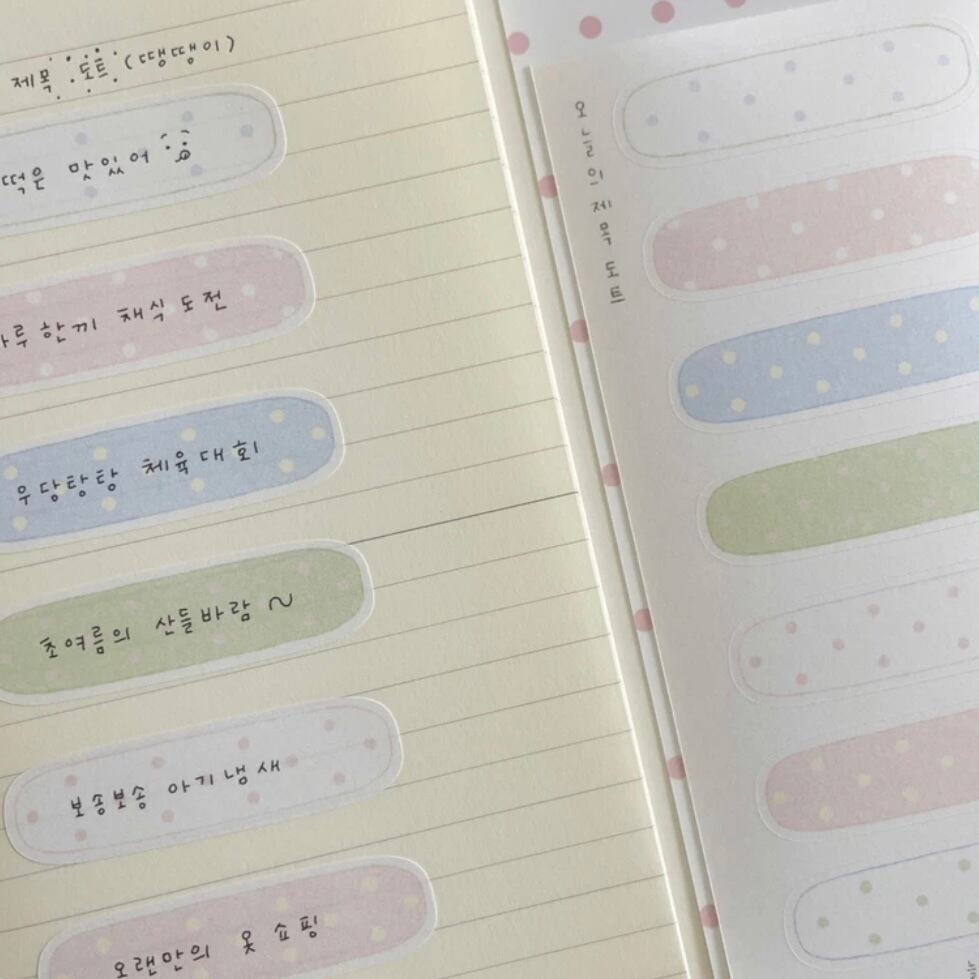 제목 도트 (땡땡이)
떡은 맛있어
하루 한끼 채식 도전
우당탕탕 체육대회
초여름의 산들바람 ~
보송보송 아기냄새
오랜만의 옷 쇼핑
오늘의 제목 도트